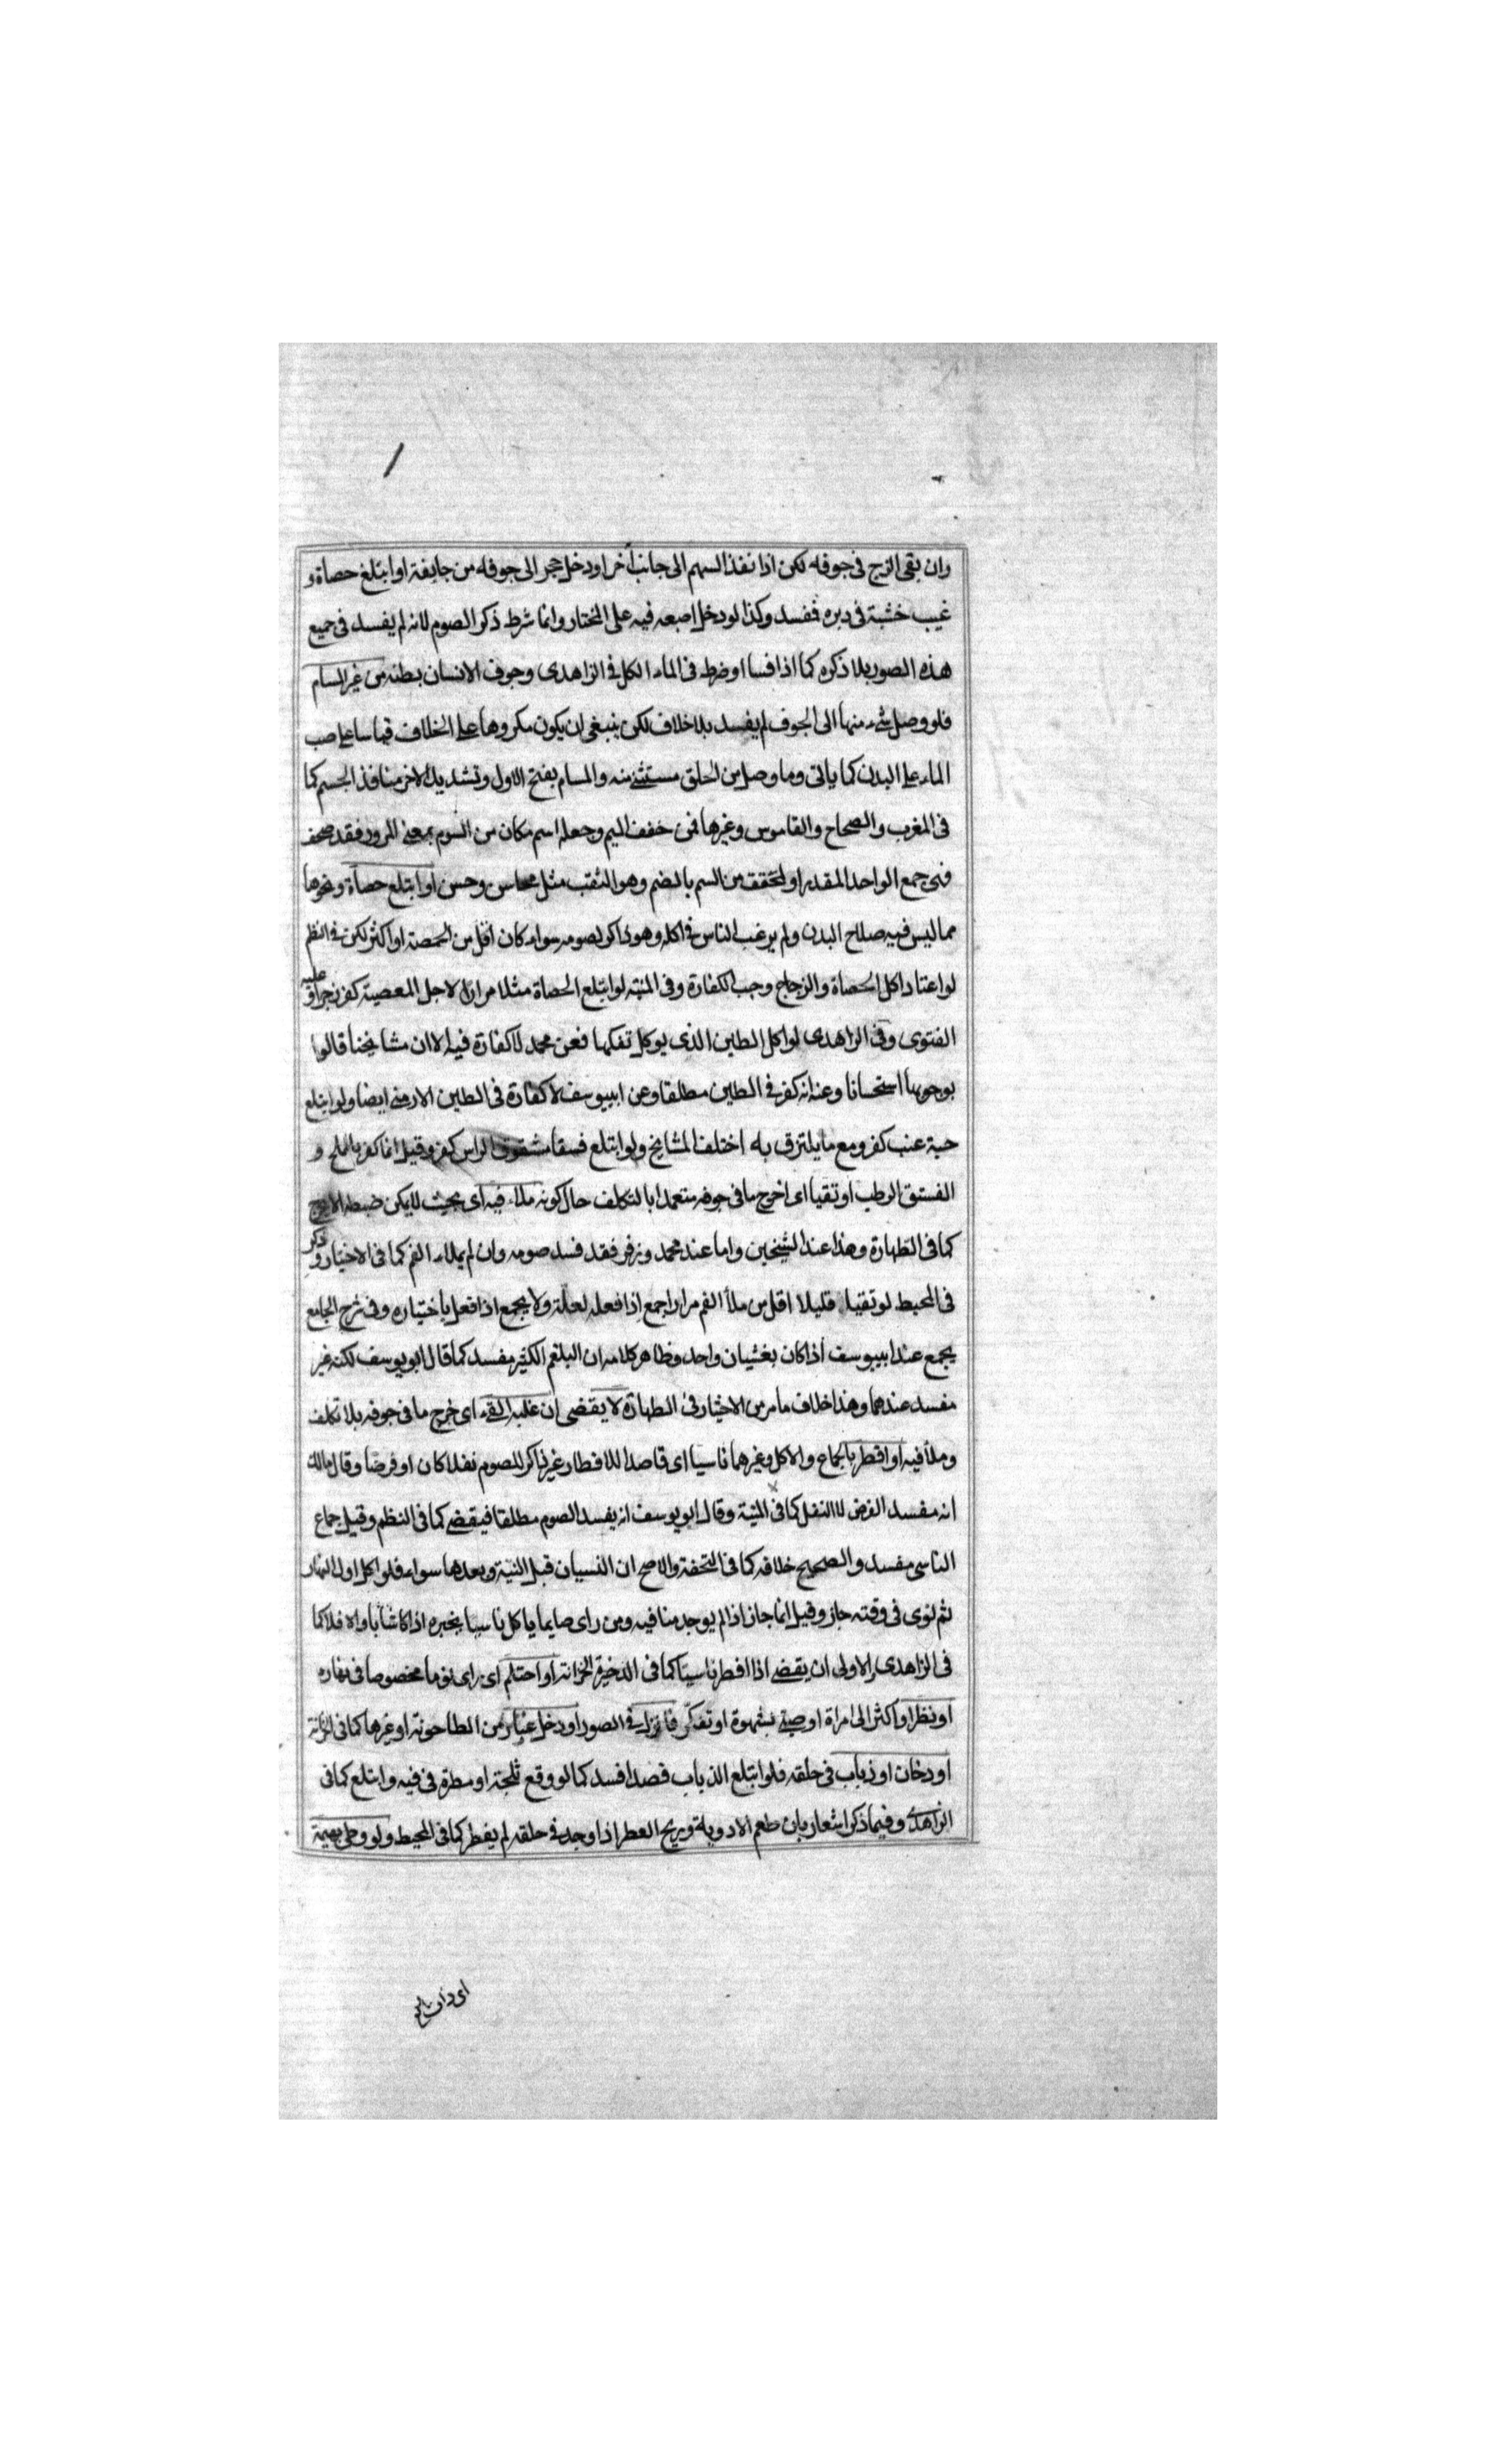 وان بقى الزج فى جوفه لكن اذا نفذ السهم الى جانب آخر او دخل حجر الى جوفه من جايفة او ابتلع حصاة و
غيب خشبة فى دبره ففسد وكذا لو دخل اصبعه فيه على المختار وانما شرط ذكر الصوم لانه لم يفسد فى جميع
هذه الصور بلا ذكره كما اذا فسا او ضرط فى الماء الكل فى الزاهدى وجوف الانسان بطنه من غير المسام
فلو وصل شىء منها الى الجوف لم يفسد بلا خلاف لكن ينبغى ان يكون مكروها على الخلاف قياسا على صب
الماء على البدن كما ياتى وما وصل من الحلق مستثنى منه والمسام بفتح الاول وتشديد الاخر منافذ الجسم كما
فى المغرب والصحاح والقاموس وغيرها فمن خفف الميم وجعله اسم مكان من السوم بمعنى المرور فقد صحف
فهى جمع الواحد المقدر او المحقق من السم بالضم وهو الثقب مثل محاسن وحسن او ابتلع حصاة ونحوها
مما ليس فيه صلاح البدن ولم يرغب الناس فى اكله وهو ذاكر لصومه سواء كان اقل من الحمصة او اكثر لكن فى النظم
لو اعتاد اكل الحصاة والزجاج وجب الكفارة وفى المنية لو ابتلع الحصاة مثلا مرارا لاجل المعصية كفر زجرا و عليه
الفتوى وفى الزاهدى لو اكل الطين الذى يوكل تفكها فعن محمد لا كفارة فيه الا ان مشايخنا قالوا
بوجوبها استحسانا وعنه انه كفر فى الطين مطلقا وعن ابييوسف لا كفارة فى الطين الارمنى ايضا ولو ابتلع
حبة عنب كفر ومع ما يلتزق به اختلف المشايخ ولو ابتلع فستقا مشقوق الراس كفر وقيل انما كفر بالملح و
الفستق الرطب او تقيا اى اخرج ما فى جوفه متعمدا بالتكلف حال كونه ملاء فيه اى بحيث لا يمكن ضبطه الا بحرج
كما فى الطهارة وهذا عند الشيخين واما عند محمد وزفر فقد فسد صومه وان لم يملاء الفم كما فى الاختيار و ذكر
فى المحيط لو تقيا قليلا اقل من ملأ الفم مرارا جمع اذا فعله لعلة ولا يجمع اذا فعل باختياره وفى شرح الجامع
يجمع عند ابييوسف اذا كان بغثيان واحد وظاهر كلامه ان البلغم الكثير مفسد كما قال ابو يوسف لكنه غير
مفسد عندهما وهذا خلاف ما مر من الاختيار فى الطهارة لا يقضى ان غلبه القىء اى خرج ما فى جوفه بلا تكلف
وملأ فيه او افطر بالجماع والاكل وغيرهما ناسيا اى قاصدا للافطار غير ذاكر للصوم نفلا كان او فرضا وقال مالك
انه مفسد الفرض لا النفل كما فى المنية وقال ابو يوسف انه يفسد الصوم مطلقا فيقضى كما فى النظم وقيل جماع
الناسى مفسد والصحيح خلافه كما فى التحفة والاصح ان النسيان قبل النية وبعدها سواء فلو اكل اول النهار
ثم نوى فى وقته جاز وقيل انما جاز اذا لم يوجد منافيه ومن راى صايما ياكل ناسيا يخبره اذا كا شابا والا فلا كما
فى الزاهدى والاولى ان يقضى اذا افطر ناسيا كما فى الذخيرة الخزانة او احتلم اى راى نوما مخصوصا فى نهاره
او نظر او اكثر الى امراة او صبى بشهوة او تفكر فانزل فى الصور او دخل غبار من الطاحونة او غيرها كما فى الخزانة
او دخان او ذباب فى حلقه فلو ابتلع الذباب قصدا فسد كما لو وقع ثلجة او مطرة فى فيه وابتلع كما فى
الزاهدى وفيما ذكر اشعار بان طعم الادوية وريح العطر اذا وجد فى حلقه لم يفطر كما فى المحيط ولو وطى بهيمة